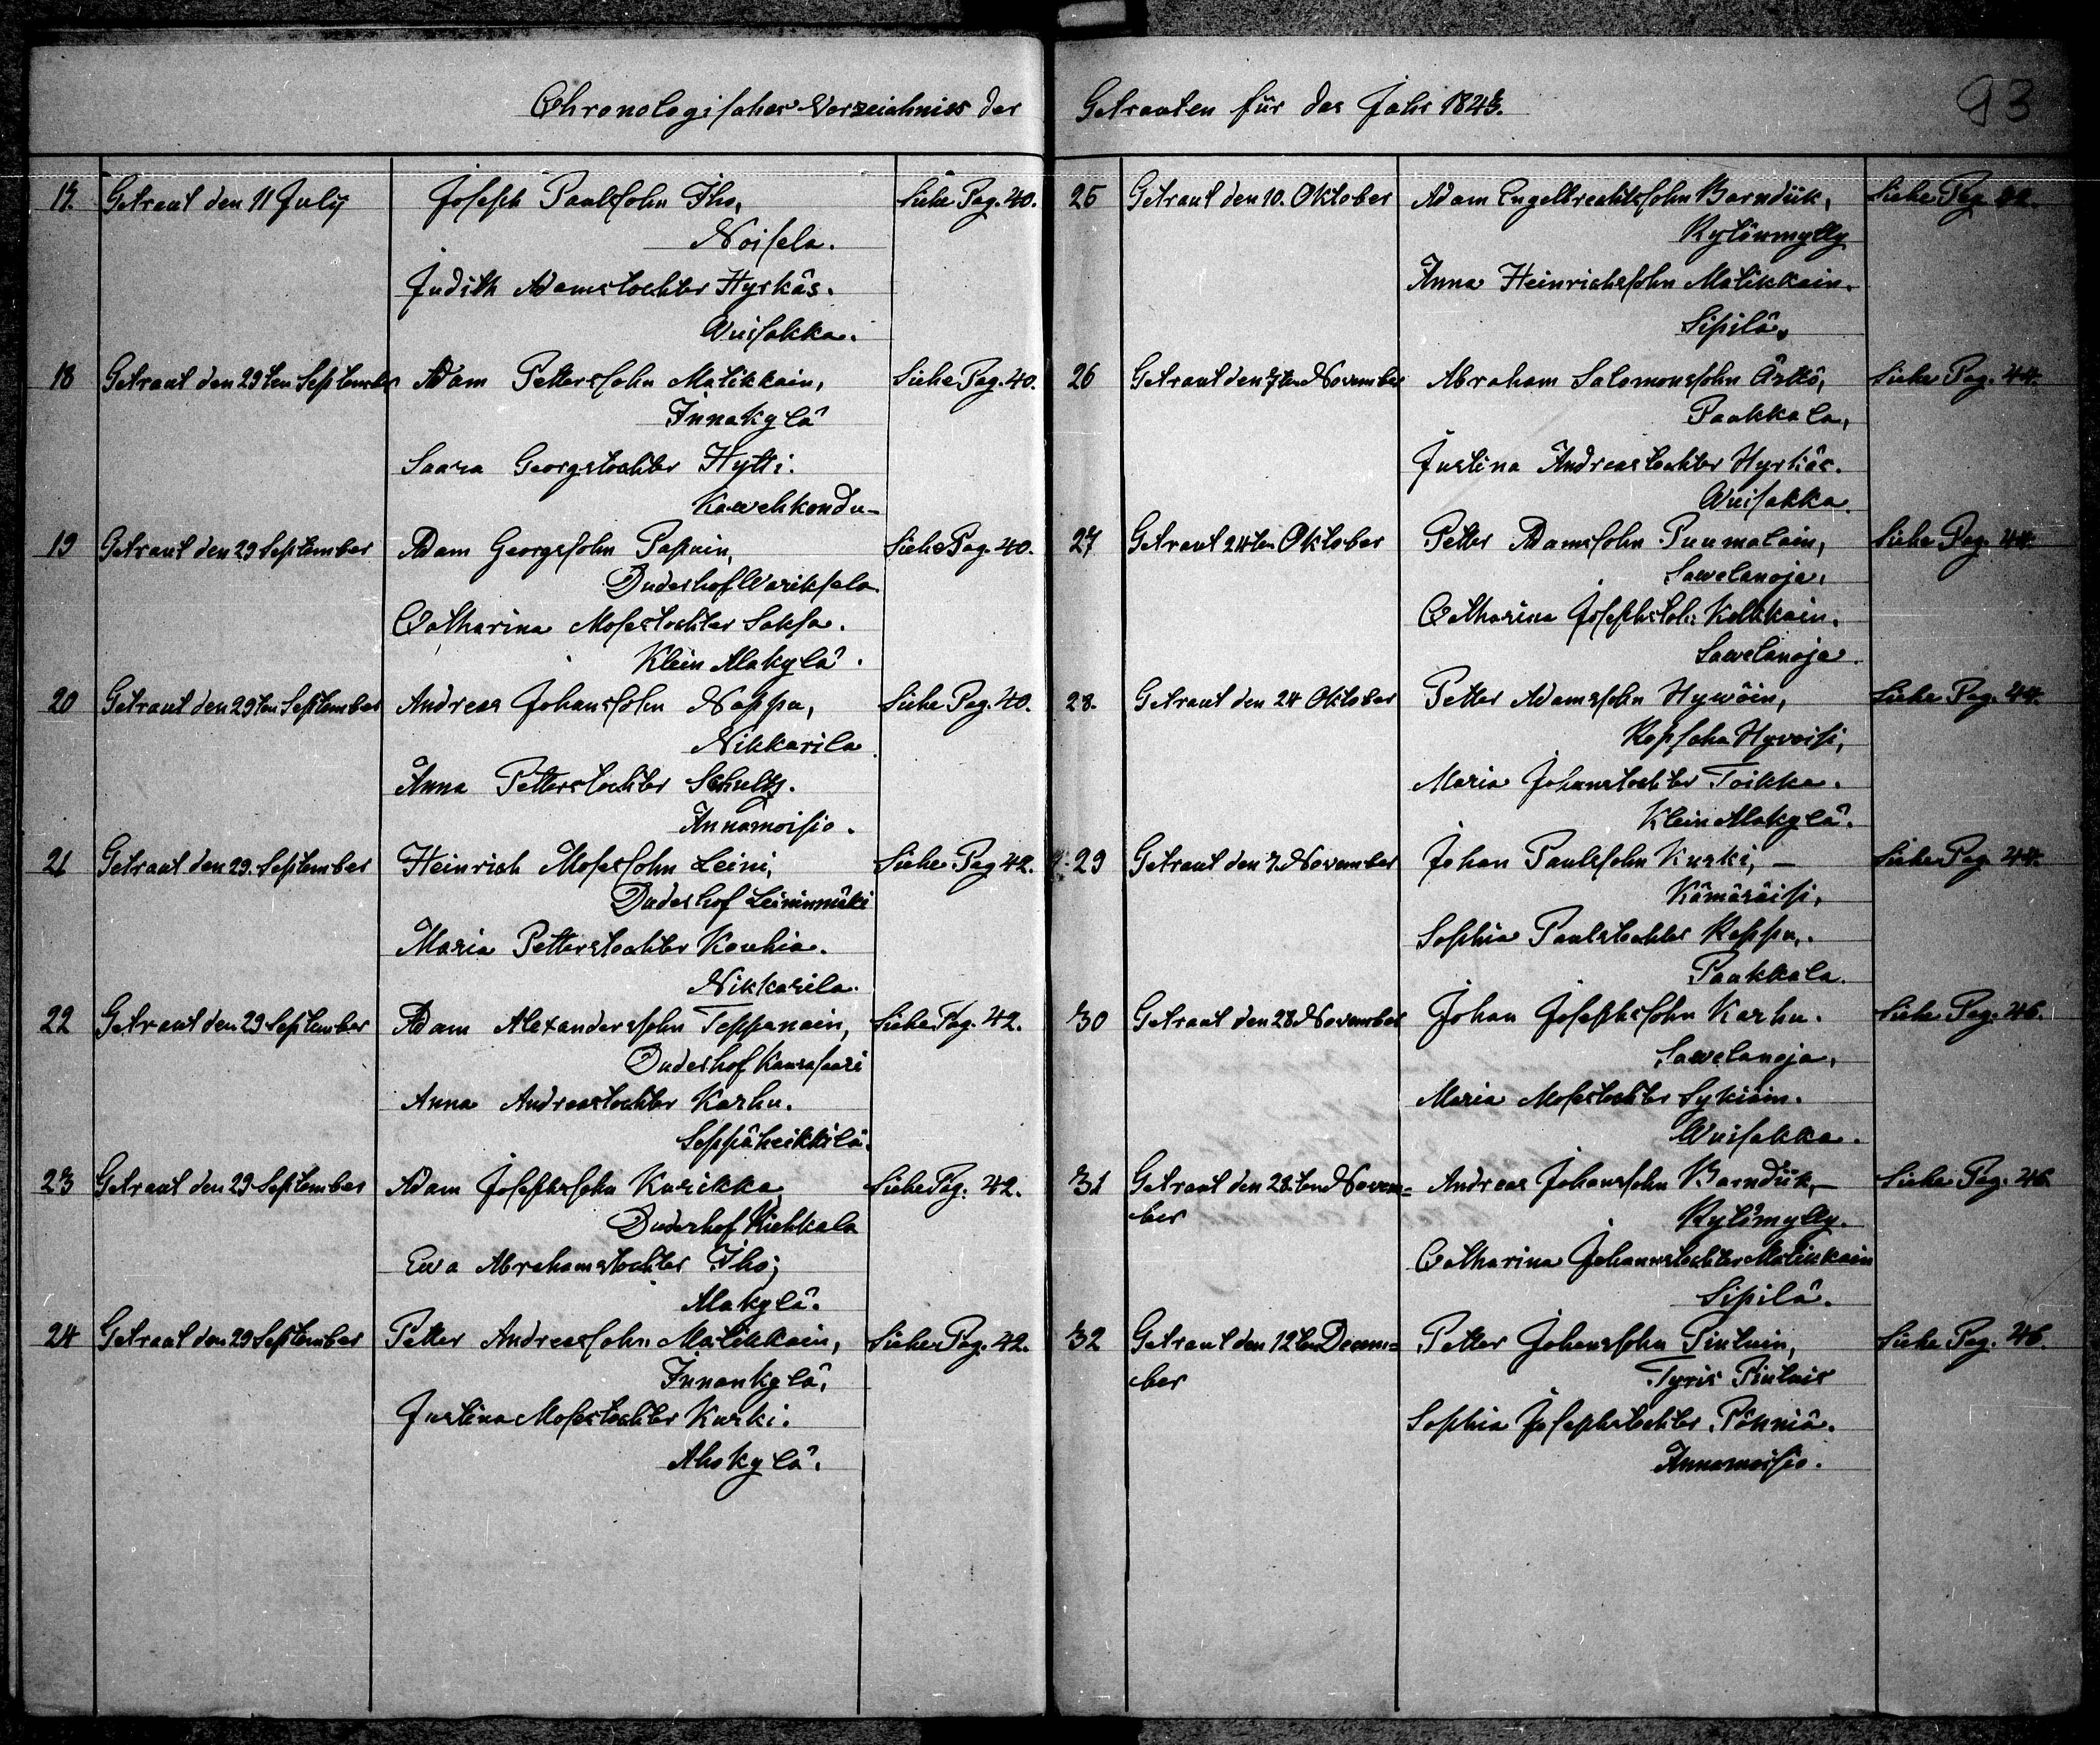 Chronologisches Verzeichniss der
17. Getraut den 11 July Joseph Paulssohn Iho, Siehe Pag. 40.
Noisela.
Judith Adamstochter Hyrkäs.
Wuisakka.
18 Getraut den 29ten September Adam Petterssohn Matikkain, Siehe Pag. 40.
Innakylä
Saara Georgstochter Hytti.
Kawelikondu
19 Getraut den 29 September Adam Georgssohn Papuin, Siehe Pag. 40.
Duderhof Variksela
Catharina Mosestochter Saksa.
Klein Alakylä.
20 Getraut den 29ten September Andreas Johanssohn Nappu, Siehe Pag. 40.
Nikkarila
Anna Petterstochter Schultz.
Annamoisio.
21 Getraut den 29. September Heinrich Mosessohn Leini, Siehe Pag 42.
Duderhof Leininmäki
Maria Petterstochter Kauhia.
Nikkarila.
22 Getraut den 29 September Adam Alexanderssohn Teppanain, Siehe Pag. 42.
Duderhof Kaurasaari
Anna Andreastochter Karhu.
Seppäheikkilä.
23 Getraut den 29 September Adam Josephssohn Kurikka Siehe Pag. 42.
Duderhof Kiehkala
Ewa Abrahamstochter Iho;
Alakylä.
24 Getraut den 29 September Petter Andreassohn Matikkain, Siehe Pag. 42.
Innankylä,
Justina Mosestochter Kurki.
Ahokylä.
Getrauten für das Jahr 1843.
93
25 Getraut den 10. Oktober Adam Engelbrechtssohn Barndük, Siehe Pag
Kylönmylly
Anna Heinrichssohn Matikkain.
Sipilä,
26 Getraut den 7ten November Abraham Salomonssohn Ärttö, Siehe Pag. 44.
Paakkala,
Justina Andreastochter Hyrkäs.
Wuisakka.
27 Getraut 24ten Oktober Petter Adamssohn Puumalain, Siehe Pag. 44.
Sawelanoja,
Catharina Josephstoch: Kolkkain.
Sawelanoja.
28. Getraut den 24 Oktober Petter Adamssohn Hywöin, Siehe Pag. 44.
Kopsoha Hyvoisi,
Maria Johanstochter Toikka.
Klein Alakylä.
29 Getraut den 7. November Johan Paulssohn Kurki, Siehe Pag. 44.
Kämäräisi,
Sophia Paulstochter Roppu,.
Paakkala.
30 Getraut den 28 November Johan Josephssohn Karhu. Siehe Pag. 46.
Sawelanoja,
Maria Mosestochter Sykiäin.
Wuisakka.
31 Getraut den 28ten Novem= Andreas Johanssohn Barndük, Siehe Pag. 46
ber Kylömylly.
Catharina Johannstochter Matikkain
Sipilä.
32 Getraut den 12ten Decem= Petter Johanssohn Pintuin, Siehe Pag. 46.
ber Tyris Pintuis
Sophia Josephstochter Pönniä.
Annamoisio.